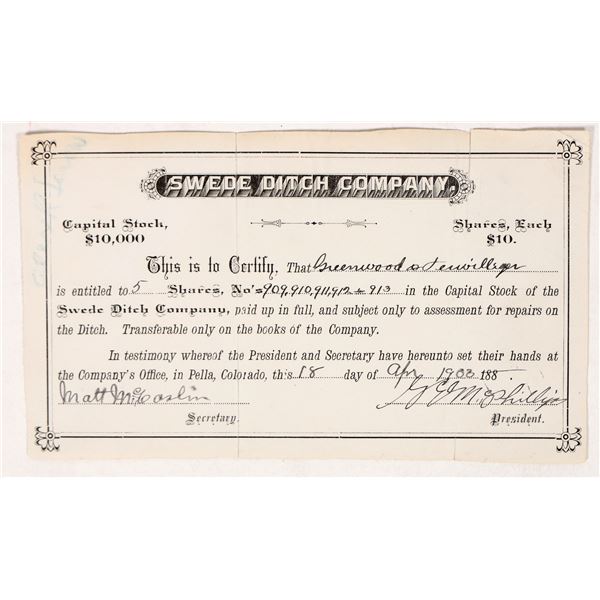 SWEDE DITCH COMPANY.
Capital Stock, $10,000
Shares, Each $10.
This is to Certify, That Greenwood & Terwilleger
is entitled to 5 Shares, No's 909, 910, 911, 912 & 913 in the Capital Stock of the
Swede Ditch Company, paid up in full, and subject only to assessment for repairs on
the Ditch. Transferable only on the books of the Company.
In testimony whereof the President and Secretary have hereunto set their hands at
the Company's Office, in Pella, Colorado, this 18 day of Apr 1903 188
Matt McCaslin
Secretary.
President.